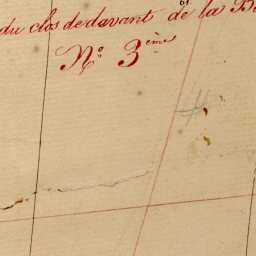 du clos de davant de la
N.° 3.ème